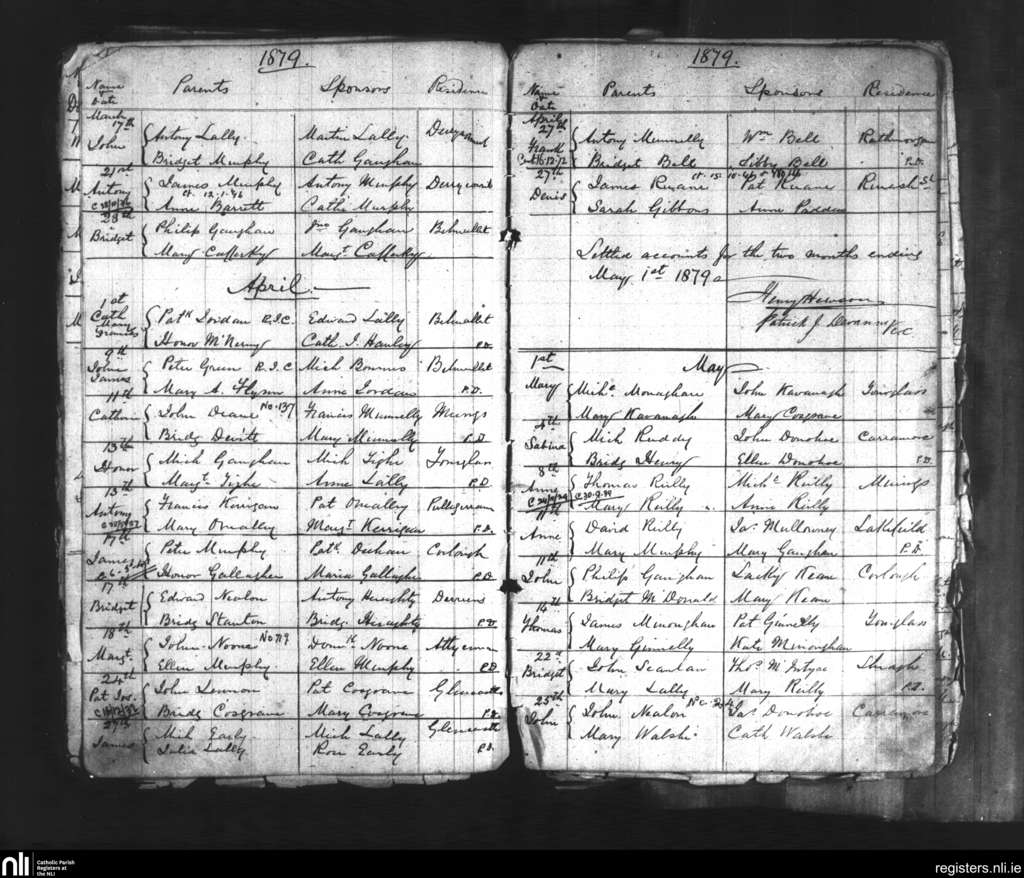 1879.
Name & Date Parents Sponsors Residence
March
17th
John Antony Lally Martin Lally
Bridget Murphy Cath Gaughan
21st
Antony James Murphy Antony Murphy
ct. 12.1.46
Anne Barrett Cath Murphy
28th
Bridget Philip Gaughan Jno Gaughan Belmullet
Mary Cafferky Margt. Cafferky
April.
1st
Cath Patk Jordan R.I.C. Edward Lally Belmullet
Mary
Honor McNerny Cath. J. Hanley P.D.
9th
John Peter Green R.I.C. Mich Belmullet
James Mary A. Flynn Anne Jordan P.D.
11th
Cathrin John Deane No. 137 Francis Munnelly Mungs
Bridg Devitt Mary Munnelly P.D.
13th
Honor Mich Gaughan Mich Tighe
Margt. Tighe Anne Lally P.D.
13th
Antony Francis Kerrigan Pat Omalley
Mary Omalley Margt Kerrigan P.D.
17th
James Peter Murphy Patk. Corlough
Honor Gallagher Maria Gallagher P.D.
17th
Bridget Edward Antony Heraghty
Bridg Stanton Bridg. Heraghty P.D.
18th
Margt. John Noone No 719 Domk Noone
Ellen Murphy Ellen Murphy P.D.
24th
Pat Jos. John Lennon Pat Cosgrave Glencastle
Bridg Cosgrave Mary Cosgrave P.D.
27th
James Mich Early Mich Lally Glencastle
Julia Lally Rose Early P.D.
1879.
Name & Date Parents Sponsors Residence
April
27th
Frank Antony Munnelly Wm Bell
Bridget Bell Libby Bell P.D.
27th
Denis James Ruane Pat Ruane
Sarah Gibbons Anne Padden
Settled accounts for the two months ending
May 1st 1879
Henry Hewson
Patrick J.
1st
May
Mary Michl. Monaghan John Kavanagh
Mary Kavanagh Mary Cosgrave
4th
Sabina Mich Ruddy John Donohoe Carramore
Bridg Henry Ellen Donohoe P.D.
8th
Anne Thomas Reilly Michl Reilly Mungs
Mary Reilly Anne Reilly
11th
Anne David Reilly Jas. Mullowney
Mary Murphy Mary Gaughan P.D.
11th
John Philip Gaughan Lacky Keane Corlough
Bridget McDonald Mary Keane
14th
Thomas James Monaghan Pat Ginnelly
Mary Ginnelly Kate Monaghan
22nd
Bridget John Scanlan Thos. McIntyre
Mary Lally Mary Reilly P.D.
23th
John John Nealon Jas. Donohoe Carramore
Mary Walsh Cath Walsh
nli Catholic Parish
Registers at
the NLI
registers.nli.ie